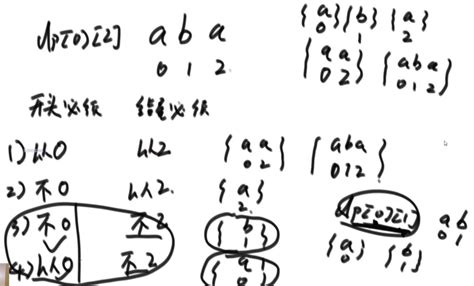 dp[0][2] a b a
0 1 2
{a} {b} {a}
0 1 2
{a a} {a b a}
0 2 0 1 2
开头必须 结尾必须
1) 以0 以2 {a a} {a b a}
0 2 0 1 2
2) 不0 以2. {a}
2
3) 不0 不2 {b}
1
4) 以0 不2 {a}
0
dp[0][1] a b
0 1
{a} {b}
0 1